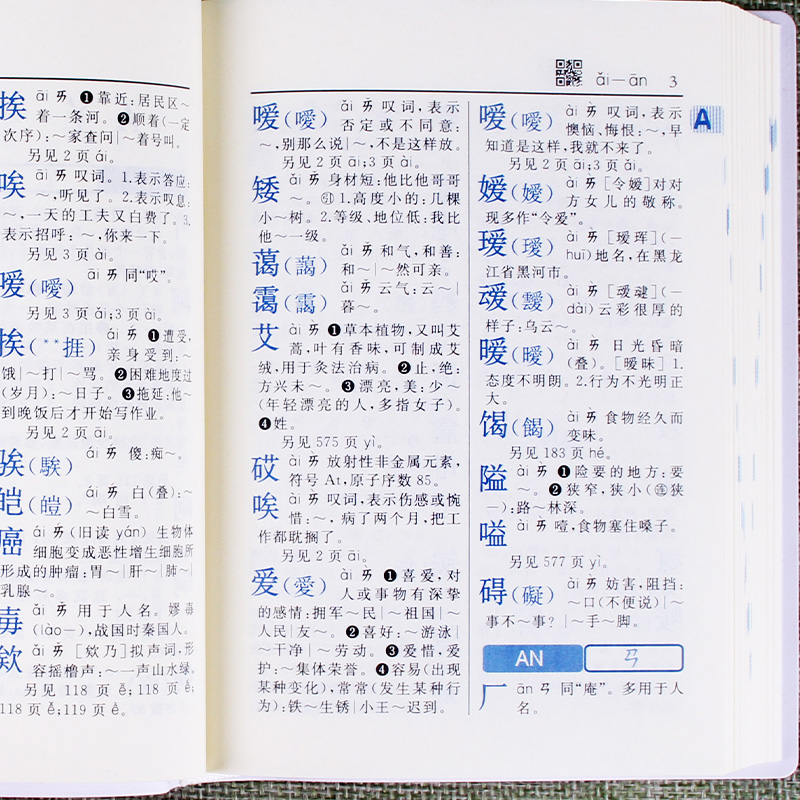 挨 āi ㄞ ❶靠近:居民区~
着一条河。❷顺着(一定
次序):~家查问|~着号叫。
另见 2 页 ái。
唉 āi ㄞ 叹词。1.表示答应:
~,听见了。2.表示叹息:
~,一天的工夫又白费了。3.
表示招呼:~,你来一下。
另见 3 页 ài。
嗳(噯) āi ㄞ 同“哎”。
另见 3 页 ǎi;3 页 ài。
挨(**捱) ái ㄞˊ ❶遭受,
亲身受到:~
饿|~打|~骂。❷困难地度过
(岁月):~日子。❸拖延:他~
到晚饭后才开始写作业。
另见 2 页 āi。
骏(騃) ái ㄞˊ 傻:痴~。
皑(皚) ái ㄞˊ 白(叠):~
~白雪。
癌 ái ㄞˊ (旧读 yán) 生物体
细胞变成恶性增生细胞所
形成的肿瘤:胃~|肝~|肺~|
乳腺~。
毐 ǎi ㄞˇ 用于人名。嫪毐
(lào—),战国时秦国人。
欸 ǎi ㄞˇ [欸乃]拟声词,形
容摇橹声:~一声山水绿。
另见 118 页 ē;118 页 é;
118 页 ě;119 页 è。
ǎi—ān 3
嗳(噯) ǎi ㄞˇ 叹词,表示
否定或不同意:
~,别那么说|~,不是这样放。
另见 2 页 āi;3 页 ài。
矮 ǎi ㄞˇ 身材短:他比他哥哥
~。㊕1.高度小的:几棵
小~树。2.等级、地位低:我比
他~一级。
蔼(藹) ǎi ㄞˇ 和气,和善:
和~|~然可亲。
霭(靄) ǎi ㄞˇ 云气:云~|
暮~。
艾 ài ㄞˋ ❶草本植物,又叫艾
蒿,叶有香味,可制成艾
绒,用于灸法治病。❷止,绝:
方兴未~。❸漂亮,美:少~
(年轻漂亮的人,多指女子)。
❹姓。
另见 575 页 yì。
砹 ài ㄞˋ 放射性非金属元素,
符号 At,原子序数 85。
唉 ài ㄞˋ 叹词,表示伤感或惋
惜:~,病了两个月,把工
作都耽搁了。
另见 2 页 āi。
爱(愛) ài ㄞˋ ❶喜爱,对
人或事物有深挚
的感情:拥军~民|~祖国|~
人民|友~。❷喜好:~游泳|
~干净|~劳动。❸爱惜,爱
护:~集体荣誉。❹容易(出现
某种变化),常常(发生某种行
为):铁~生锈|小王~迟到。
嗳(噯) ài ㄞˋ 叹词,表示
懊恼、悔恨:~,早
知道是这样,我就不来了。
另见 2 页 āi;3 页 ǎi。
嫒(嬡) ài ㄞˋ [令嫒]对对
方女儿的敬称。
现多作“令爱”。
瑷(璦) ài ㄞˋ [瑷珲](—
huī)地名,在黑龙
江省黑河市。
叆(靉) ài ㄞˋ [叆叇](—
dài)云彩很厚的
样子:乌云~。
暧(曖) ài ㄞˋ 日光昏暗
(叠)。[暧昧] 1.
态度不明朗。2.行为不光明正
大。
馤(餲) ài ㄞˋ 食物经久而
变味。
另见 183 页 hé。
隘 ài ㄞˋ ❶险要的地方:要
~。❷狭窄,狭小(㊣狭
—):路~林深。
嗌 ài ㄞˋ 噎,食物塞住嗓子。
另见 577 页 yì。
碍(礙) ài ㄞˋ 妨害,阻挡:
~口(不便说)|~
事不~事?|~手~脚。
AN ㄢ
厂 ān ㄢ 同“庵”。多用于人
名。
A